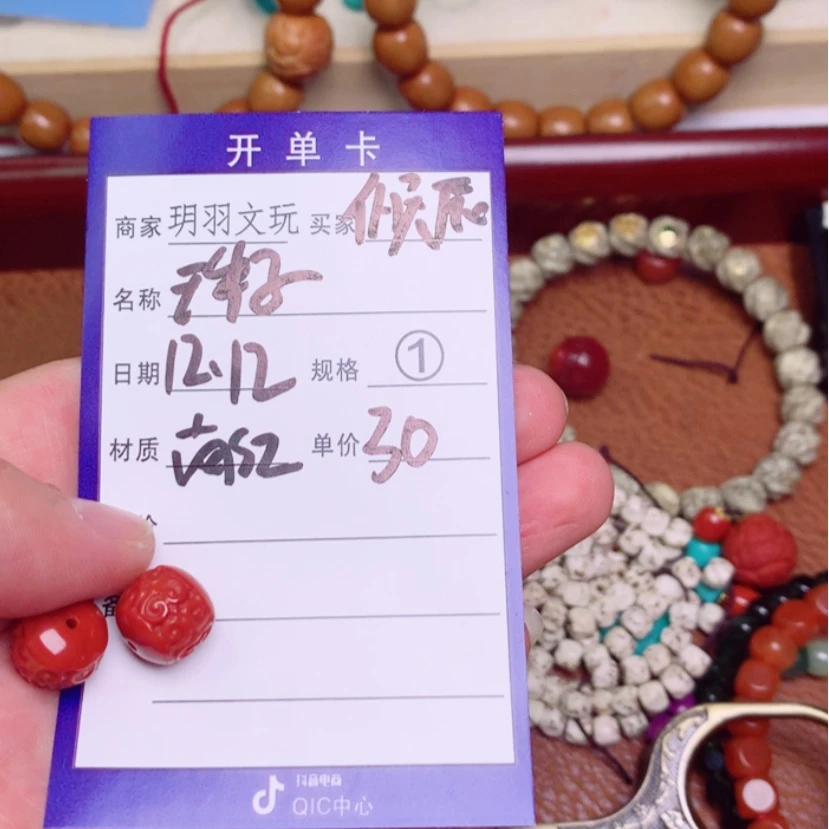 开单卡
商家 玥羽文玩 买家
名称 珠子
日期 12.12 规格 ①
材质 单价 30
抖音电商
QIC中心